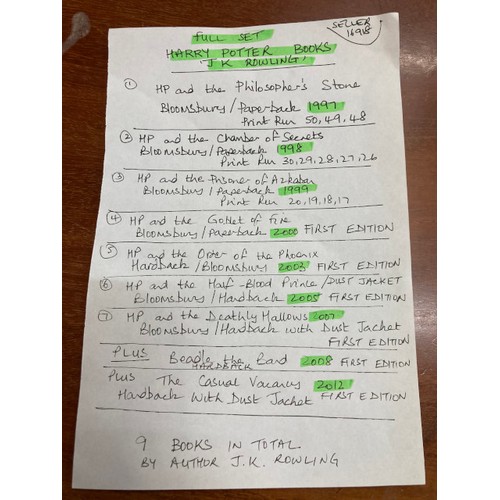 FULL SET
SELLER
16918
HARRY POTTER BOOKS
'J.K ROWLING'
① HP and the Philosopher's Stone
Bloomsbury/Paperback 1997
Print Run 50,49,48
② HP and the Chamber of Secrets
Bloomsbury/Paperback 1998
Print Run 30,29,28,27,26
③ HP and the Prisoner of Azkaban
Bloomsbury/Paperback 1999
Print Run 20,19,18,17
④ HP and the Goblet of Fire
Bloomsbury/Paperback 2000 FIRST EDITION
⑤ HP and the Order of the Phoenix
Hardback/Bloomsbury 2003 FIRST EDITION
⑥ HP and the Half-Blood Prince/DUST JACKET
Bloomsbury/Hardback 2005 FIRST EDITION
⑦ HP and the Deathly Hallows 2007
Bloomsbury/Hardback with Dust Jacket
FIRST EDITION
PLUS Beadle the Bard 2008 FIRST EDITION
HARDBACK
PLUS The Casual Vacancy 2012
Hardback With Dust Jacket FIRST EDITION
9 BOOKS IN TOTAL
BY AUTHOR J.K. ROWLING